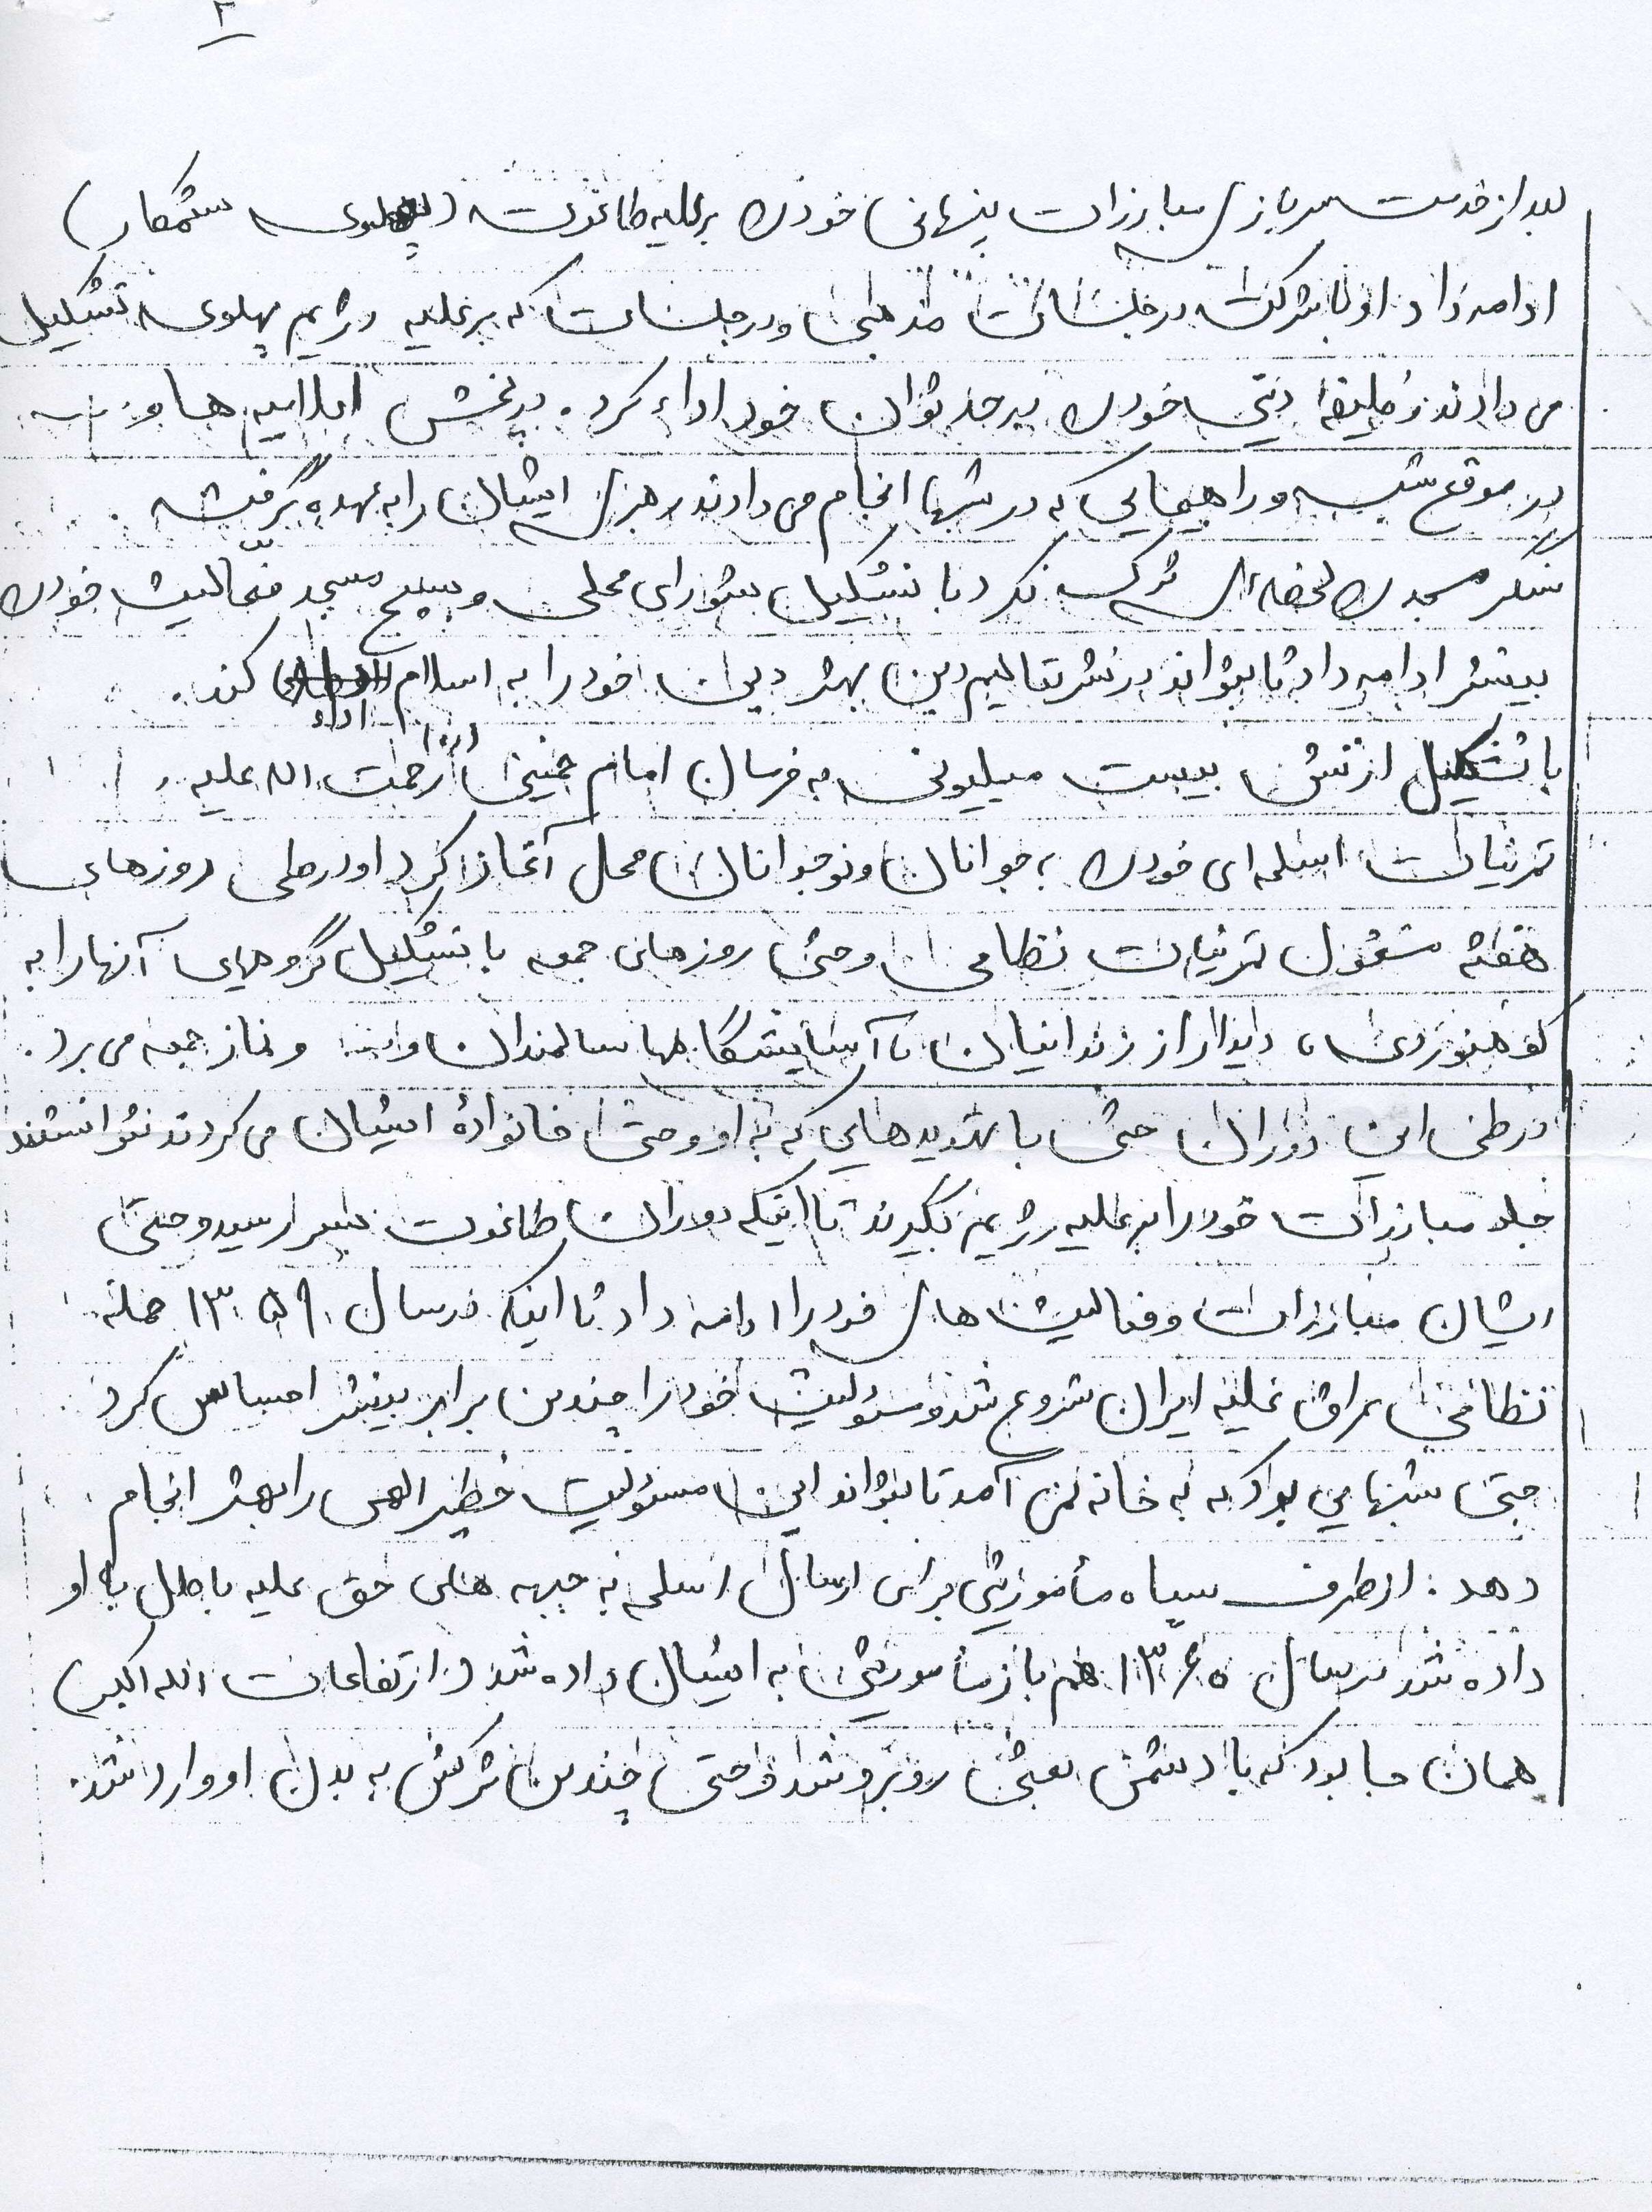 ۲
بعد از خدمت سربازی مبارزات پنهانی خودرا برعلیه طاغوت (پهلوی ستمکار)
ادامه داد او با شرکت در جلسات مذهبی و در جلسات که بر علیه رژیم پهلوی تشکیل
می دادند وظیفه دینی خودرا بر حد توان خود اداء کرد. در پخش اعلامیه ها و
در موقع شب و راهپیمایی که در شبها انجام می دادند رهبری ایشان را به عهده گرفت.
سنگر مسجد را لحظه ای ترک نکرد با تشکیل شورای محلی و بسیج مسجد فعّالیت خودرا
بیشتر ادامه داد تا بتواند در نشر تعالیم دین بهتر دین خود را به اسلام اداء کند.
با تشکیل ارتش بیست میلیونی به فرمان امام خمینی رحمت الله علیه
تمرینات اسلحه ای خودرا به جوانان و نوجوانان محل آغاز کرد او در طی روزهای
هفته مشغول تمرینات نظامی و حتی روزهای جمعه با تشکیل گروههای آنها را به
کوهنوردی، دیدار از زندانیان، آسایشگاهها سالمندان و نماز جمعه می برد.
در طی این دوران حتی با تهدیدهایی که به او و حتی خانوادهٔ ایشان می کردند نتوانستند
جلو مبارزات خود را بر علیه رژیم بگیرند تا اینکه دوران طاغوت بسر رسید و حتی
ایشان مبارزات و فعالیت های خود را ادامه داد تا اینکه در سال ۱۳۵۹ حمله
نظامی عراق علیه ایران شروع شد و مسئولیت خود را چندین برابر بیشتر احساس کرد
حتی شبهایی بود که به خانه نمی آمد تا بتواند این مسئولیت خطیر الهی را بهتر انجام
دهد. از طرف سپاه مأموریتی برای ارسال اسلحه به جبهه های حق علیه باطل به او
داده شد در سال ۱۳۶۰ هم باز مأموریتی به ایشان داده شد (ارتفاعات الله اکبر)
همان جا بود که با دشمن بعثی روبرو شد و حتی چندین ترکش به بدن او وارد شد.